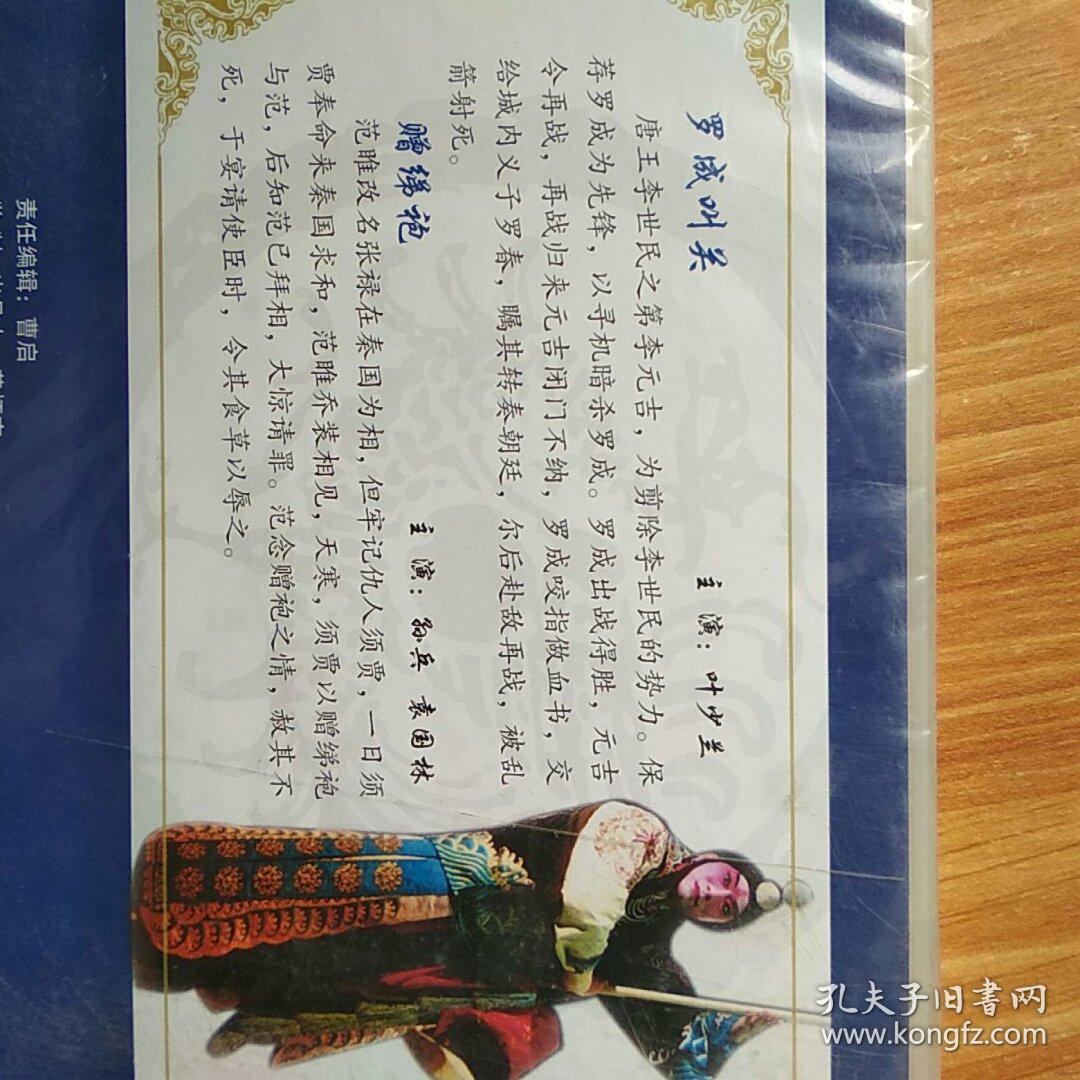 罗成叫关
主 演：叶少兰
唐王李世民之第李元吉，为剪除李世民的势力。保
荐罗成为先锋，以寻机暗杀罗成。罗成出战得胜，元吉
令再战，再战归来元吉闭门不纳，罗成咬指做血书，交
给城内义子罗春，瞩其转奏朝廷，尔后赴敌再战，被乱
箭射死。
赠绨袍
主 演：孙兵 袁国林
范睢改名张禄在秦国为相，但牢记仇人须贾，一日须
贾奉命来秦国求和，范睢乔装相见，天寒，须贾以赠绨袍
与范，后知范已拜相，大惊请罪。范念赠袍之情，赦其不
死，于宴请使臣时，令其食草以辱之。
责任编辑：曹启
孔夫子旧书网
www.kongfz.com